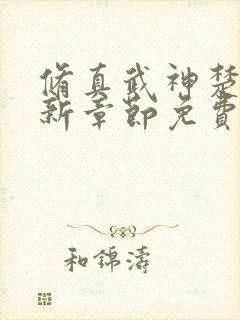 脩真武神楚
新章節免費
和錦濤